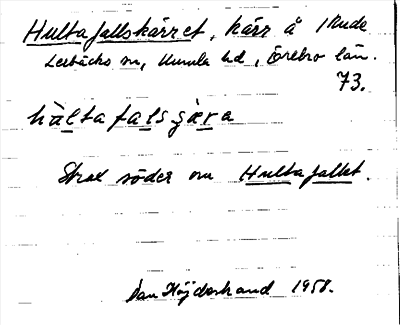 Hultafallskärret, kärr å Skude
Lerbäcks sn, Kumla hd, Örebro län.
73.
hàltafalsɟæ̀ra
Strax söder om Hultafallet.
Dan Höjdestrand 1958.